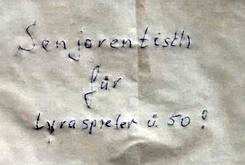 Senjorentisth
für
Lyraspieler ü. 50!